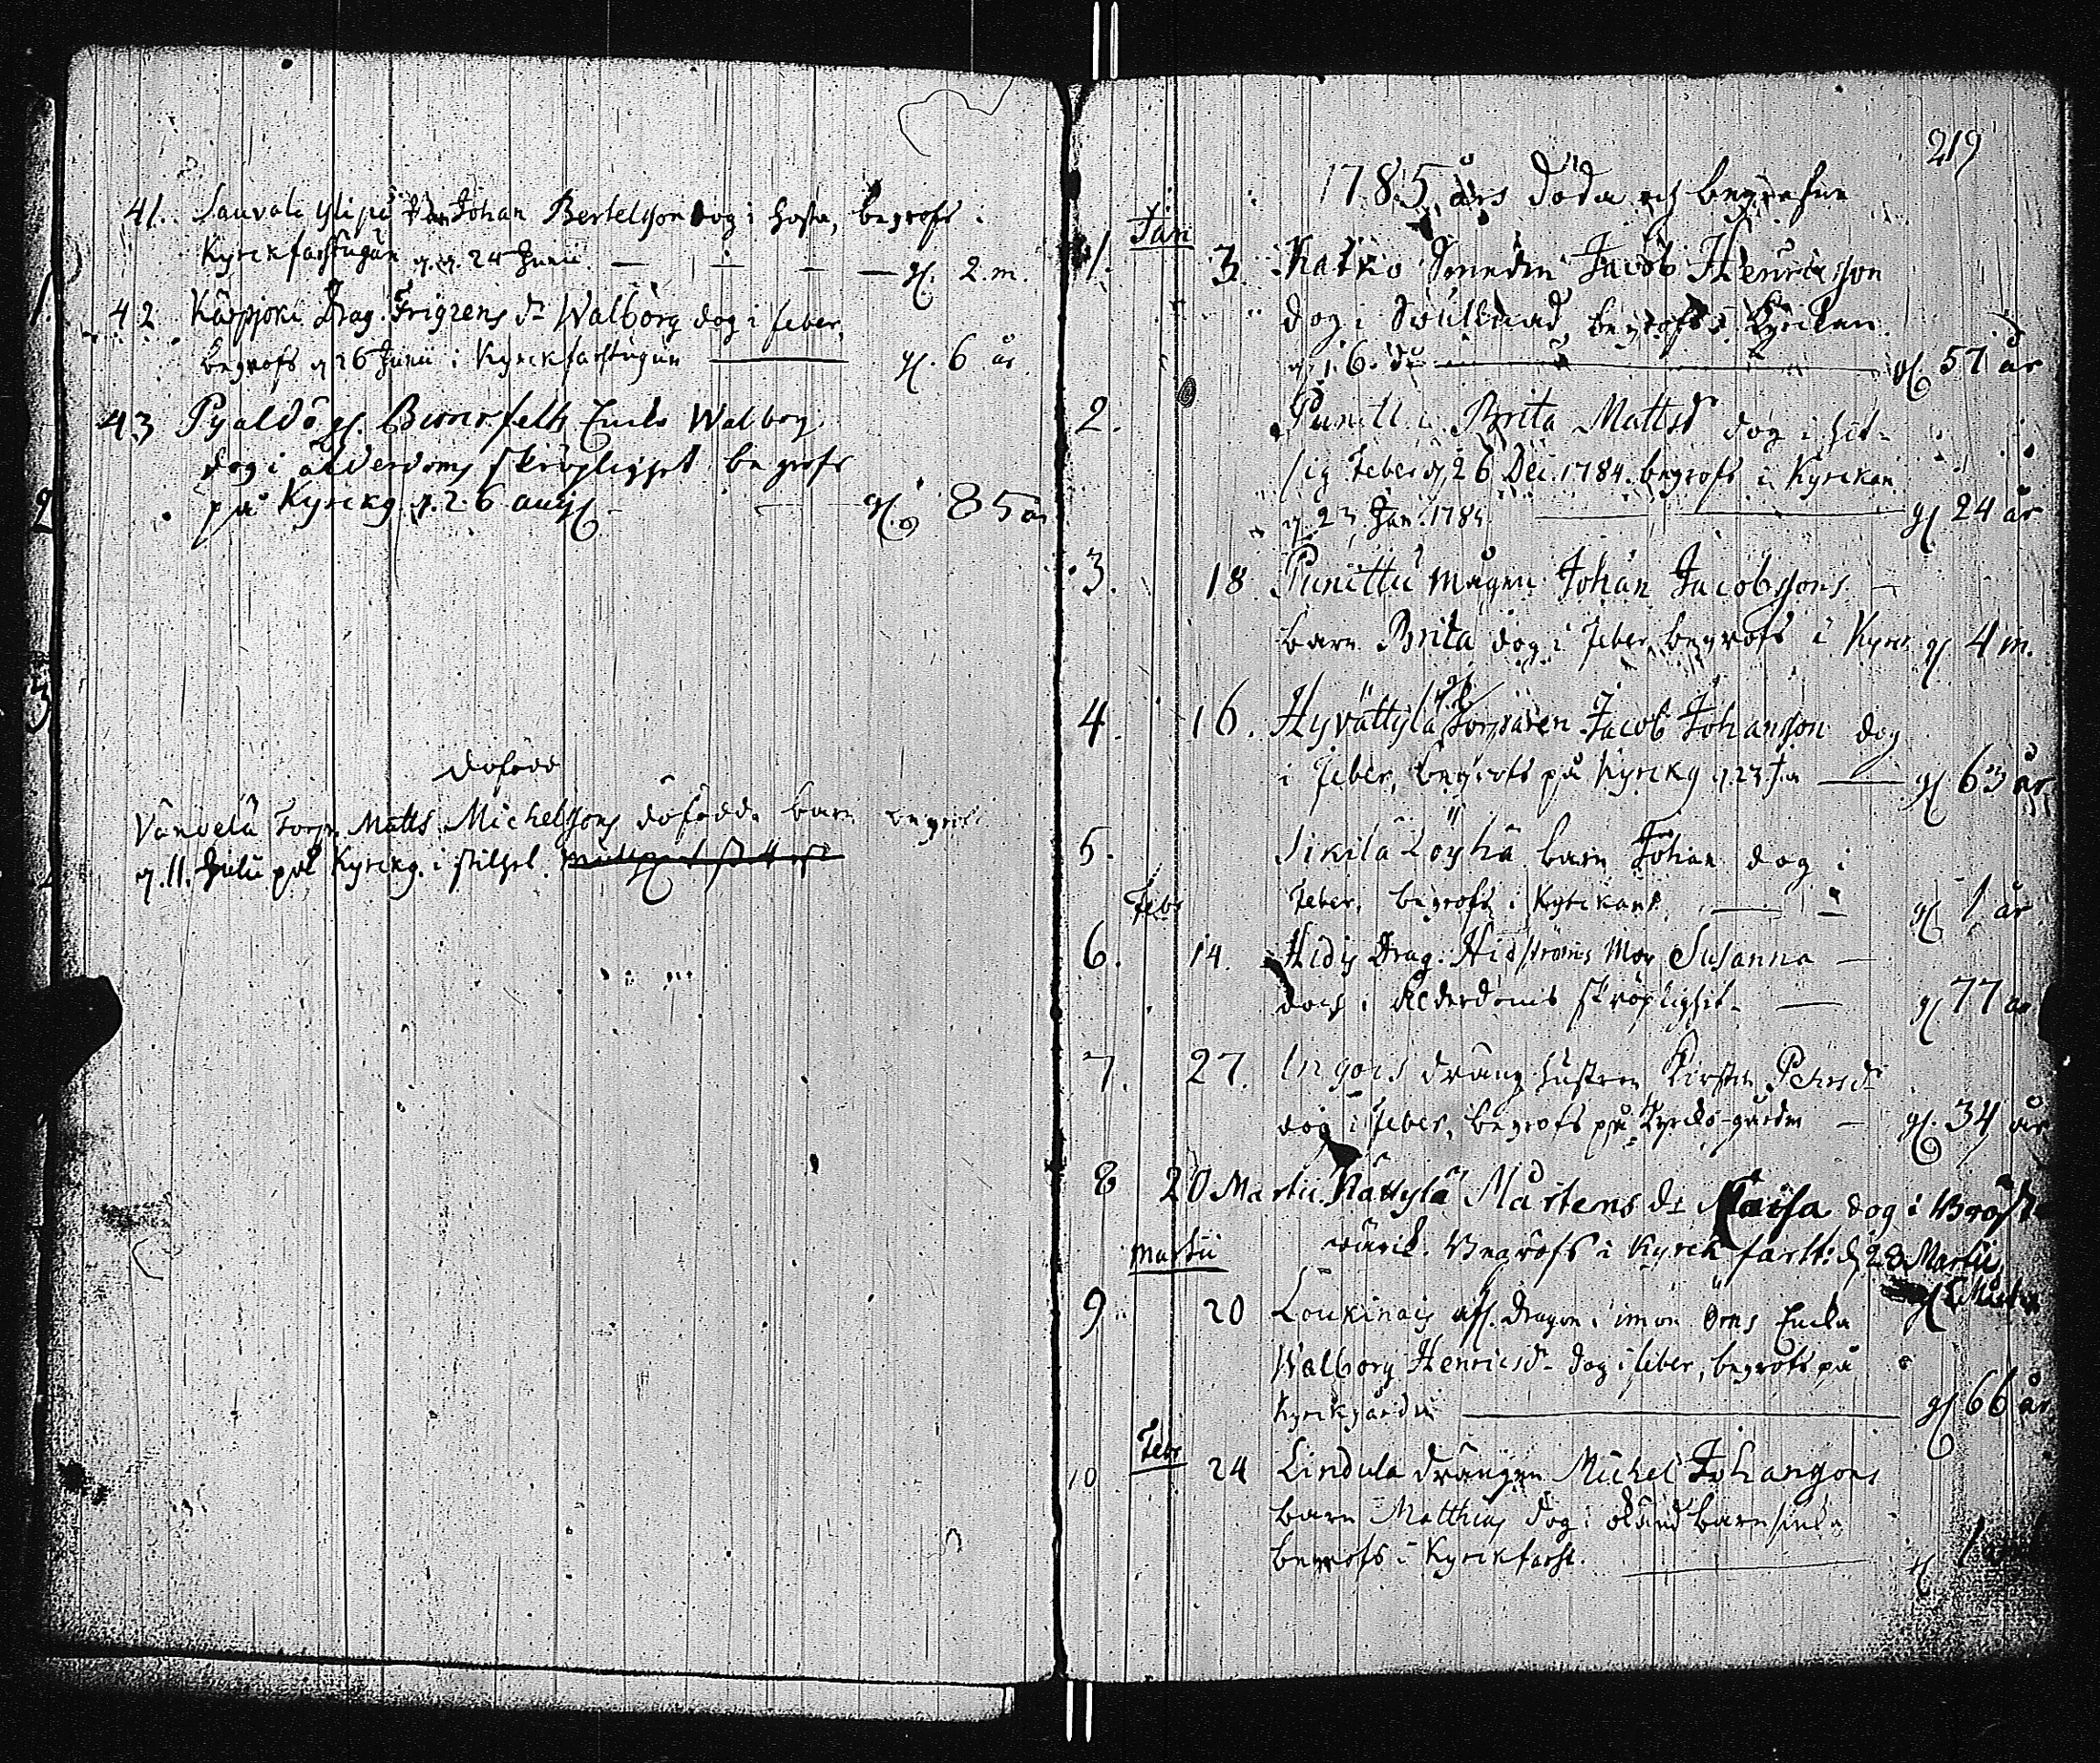 41. Sauvala Johan Bertelsson dog i hosta, begrofs i
Kyrckfarstugun d. 24 Junii gl. 2. m.
42 Karpjoki Drag. Frigrens dr Walborg dog i feber,
begrofs d 26 Junii i Kyrckfarstugun gl. 6 år
43 Pyaldö gl. Enka Walborg
dog i ålderdoms skröplighet begrofs
på Kyrckg d. 26 aug gl. 85 år
döfödd
Vanvela Torp Matts Michelssons döfödda barn begrofs
d. 11. Julii på Kyrckg. i stilhet.
219
1785 års döda och begrafne
Jan
1. 3. Katko Smeden Jacob Henricsson
dog i begrofs i Kyrckan
d 16. gl. 57 år
2. Brita Mattsd dog i het-
sig feber d 26 Dec. 1784. begrofs i Kyrckan
d 23 Jan. 1785 gl 24 år
3. 18 Punittu mågen Johan Jacobssons
barn Brita dog i feber begrofs i Kyrc gl 4 m.
4. 16. Hyvättylä Torparen Jacob Johansson dog
i feber, begrofs på Kyrckg d 23 Ja gl 63 år
5. Sikilä Löyhä barn Johan dog i
feber, begrofs i Kyrckan gl 1 år
Febr
6. 14. Hidis Drag. Hidströms Mor Susanna
dog i ålderdoms skröplighet gl 77 år
7. 27. Ingois dräng hustrun Kirstin Pehrsdr
dog i feber, begrofs på Kyrcko-gården gl. 34 år
8 20 Martii Nättylä Mårtens dr Caisa dog i Bröst
wärck. Begrofs i Kyrck farst: d 28 Martii
Martii
9 20 Loukinais afs. Dragon Örns Enka
Walborg Henricsdr dog i feber, begrofs på
Kyrckgården gl 66 år
Febr
10 24 Lindula drängen Michel Johanssons
barn Matthias dog i okänd barnsiuka
begrofs i Kyrckfarst. gl 1